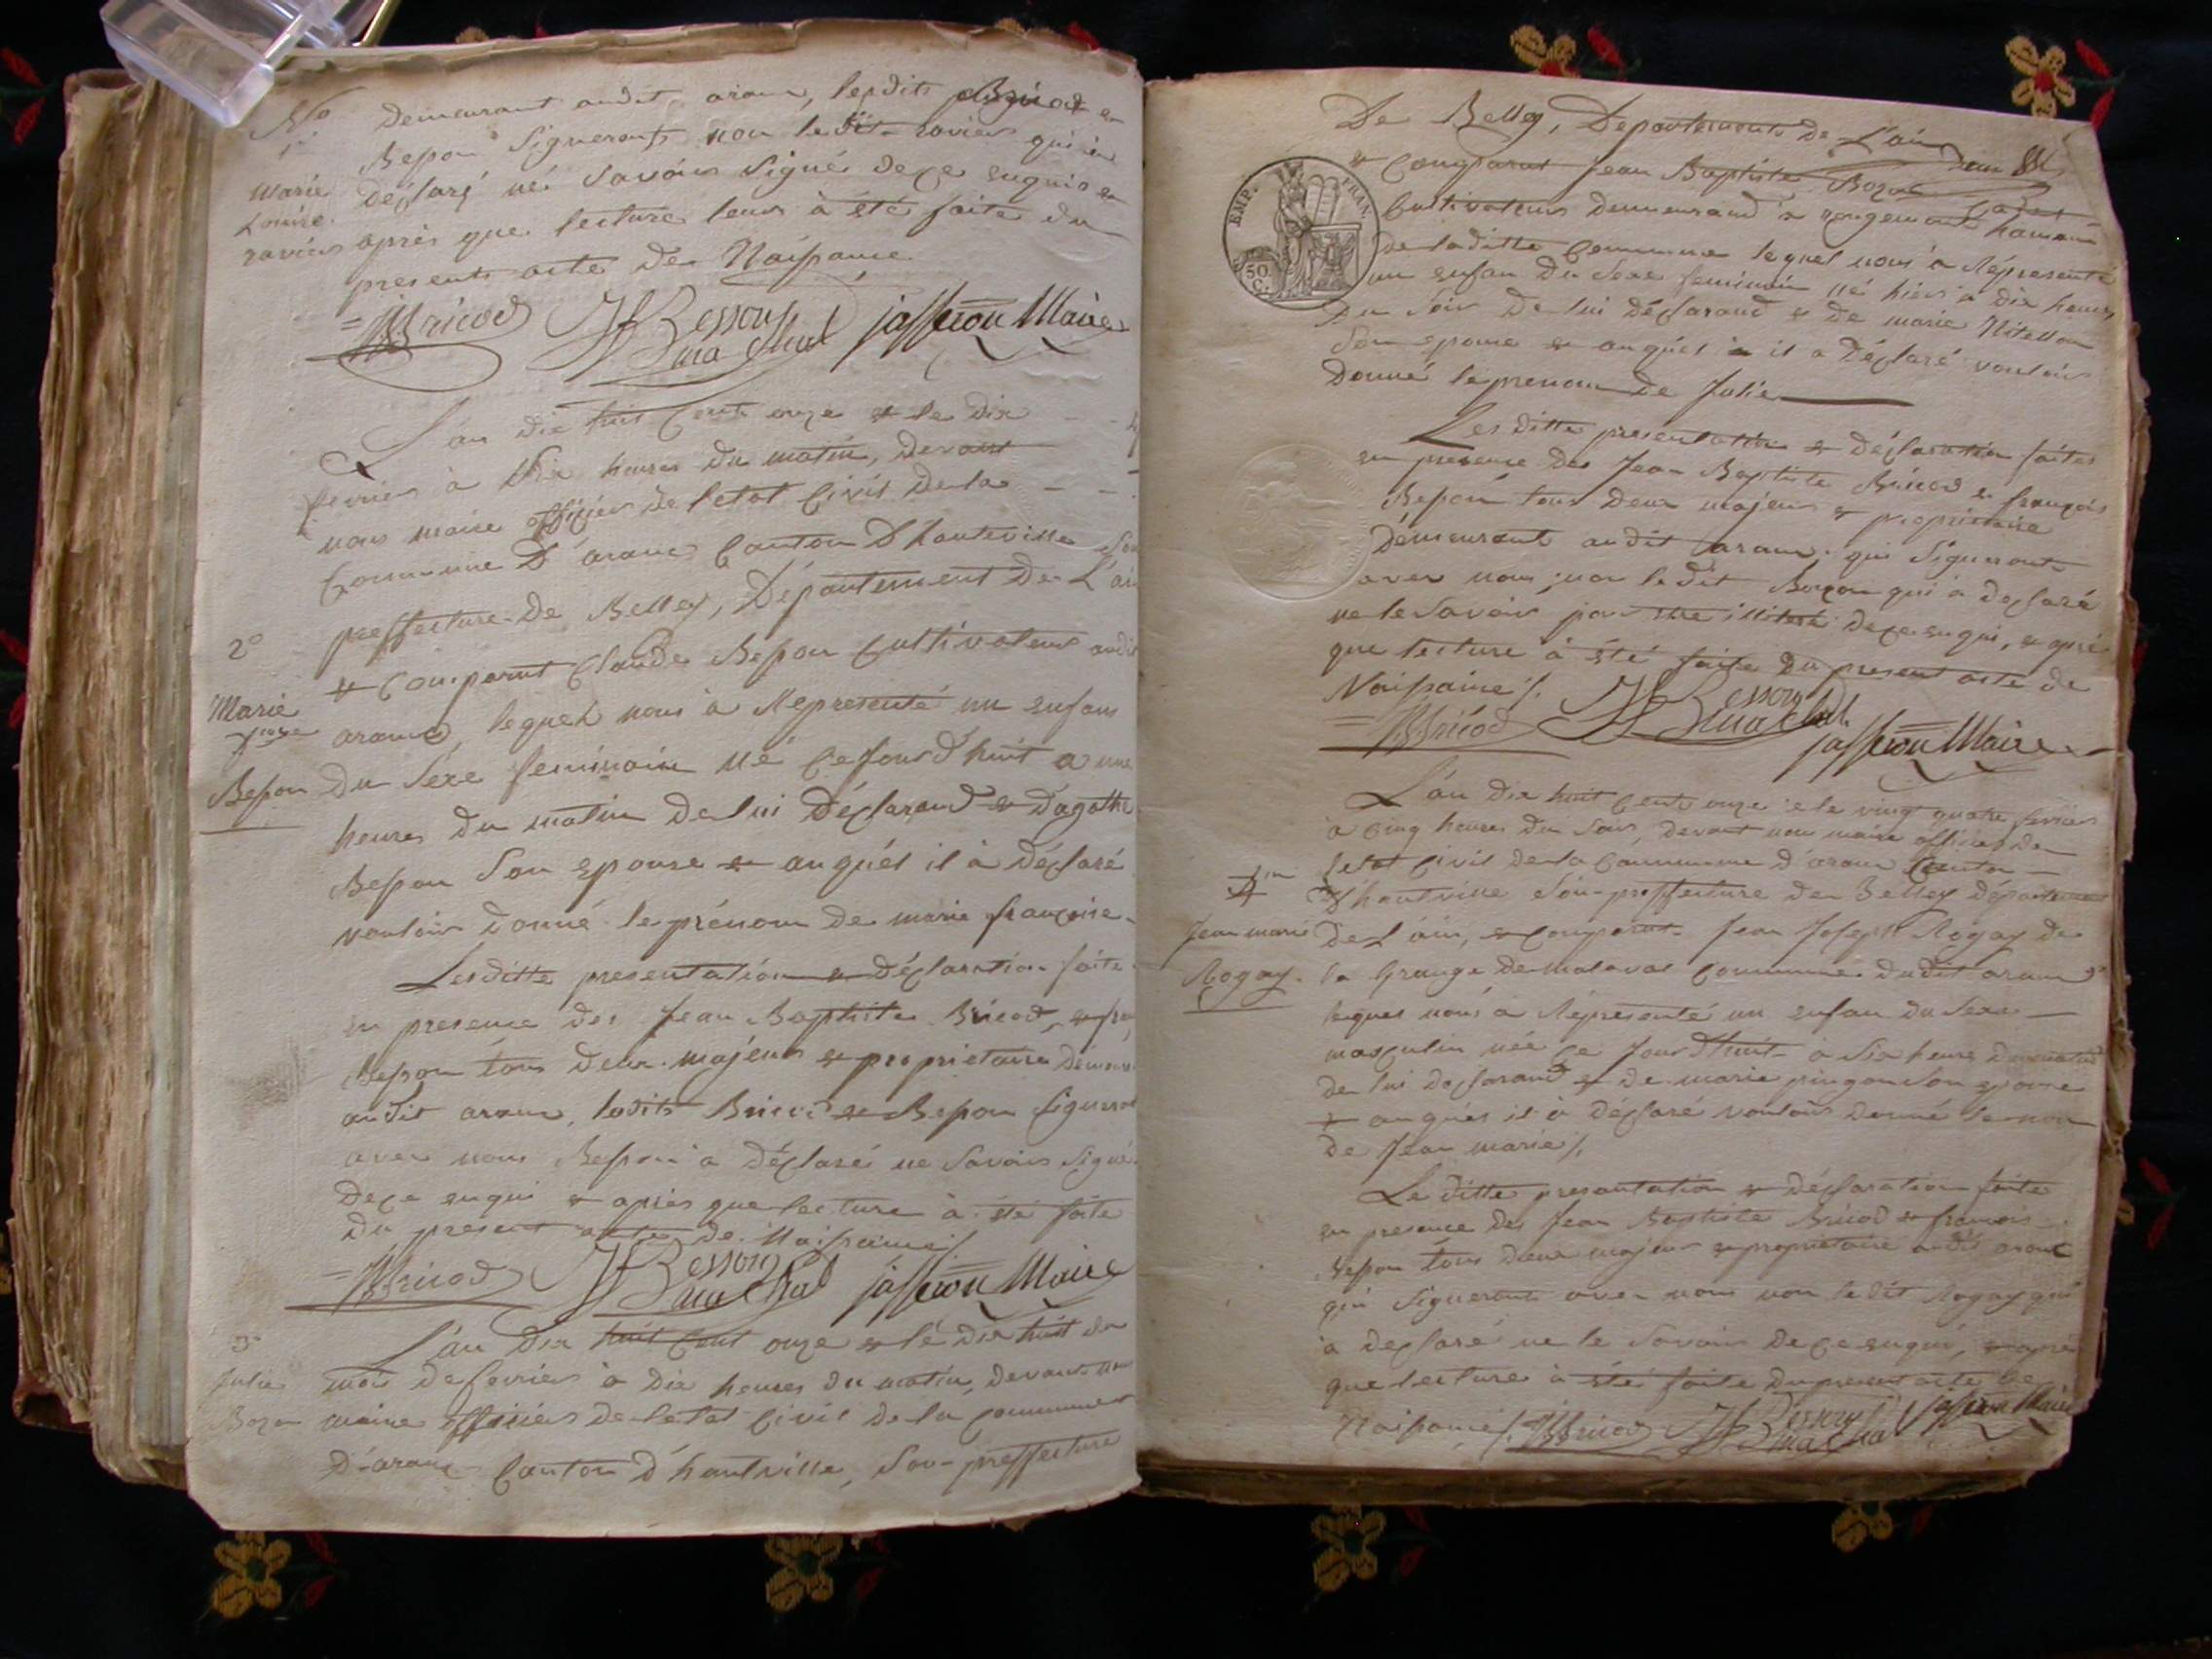 No
1
Marie
Louise
ravier
demeurant audit aranc, lesdits Bricod et
Besson Signeront non ledit ravier qui a
déclaré né Savoir Signé dece enquis et
après que lecture leur à été faite du
present acte de Naissance
JBBricod JF Besson marchal jasseron Maire
L'an dix huit cent onze et le dix
fevrier à dix heures du matin, devant
nous maire officier de letat Civil dela
Commune D'aranc Canton D'hauteville Sou
preffecture de Belley, Département de L'ain
2°
Marie
Besson
et Comparut Claude Besson Cultivateur audit
aranc, lequel nous à Représenté un enfans
du Séxe feminain né cejourd'huit a une
heures du matin de lui Déclarand et D'agathe
Besson Son epouse et auquél il à déclaré
vouloir donné le prénom de marie françoise
Lesditte presentation et déclaration faite
en presence des Jean Baptiste Bricod, et
Besson tous deux majeurs et proprietaire
audit aranc, lesdits Bricod et Besson Signeront
avec nous Besson à déclaré ne Savoir Signé
dece enqui et après que lecture à été faite
du present acte de Naissance
JBBricod JF Besson marchal jasseron Maire
3°
Julie
Bozon
L'an dix huit Cent onze et lé dix huit du
moi de fevrier à dix heures du matin, devant nous
maire officiers de letat Civil de la Commune
D'aranc Canton d'hautville, Sou-preffecture
De Belley, Departement De L'ain
EMP. FRAN.
50
C.
et Comparut Jean Baptiste Bozon
Cultivateur demeurand à rougemont hameau
de laditte Commune lequel nous à Répresenté
un enfan du Sexe feminain né hier à dix heures
du Soir de lui déclarand et de marie
Son epouse et auquél il a déclaré vouloir
donné le prenom de Julie
Les ditte presentation et déclaration faites
en presence des Jean Baptiste Bricod et françois
Besson tous deux majeurs et propriétaire
démeurant audit aranc qui Signeront
avec nous, non ledit Bozon qui à déclaré
ne le Savoir pour etre illiteré dece enqui, et après
que lecture à été faite du present acte de
Naissance
JBBricod JF Besson marchal
jasseron Maire
L'an dix huit Cent onze et le vingt quatre fevrier
à Cinq heures du Soir, devant nou maire officier de
letat Civil dela Commune d'aranc Canton
D'hautville Sou-preffecture de Belley département
Jean marie
Rogay
de L'ain, et Comparut Jean Joseph Rogay de
la Grange de malaval Commune dudit aranc
lequel nous à Répresenté un enfan du Sexe
masculin née ce jourd'huit à Six heures du matin
de lui déclarand et de marie pingon Son epouse
et auquél il à déclaré vouloir donné le nom
de Jean marie
Le ditte presentation et déclaration faite
en presence des Jean Baptiste Bricod et françois
Besson tous deux majeur et proprietaire audit aranc
qui Signeront avec nous non ledit Rogay qui
à déclaré ne le Savoir dece enqui, et après
que lecture à été faite du present acte de
Naissance JBBricod JF Besson marchal jasseron Maire